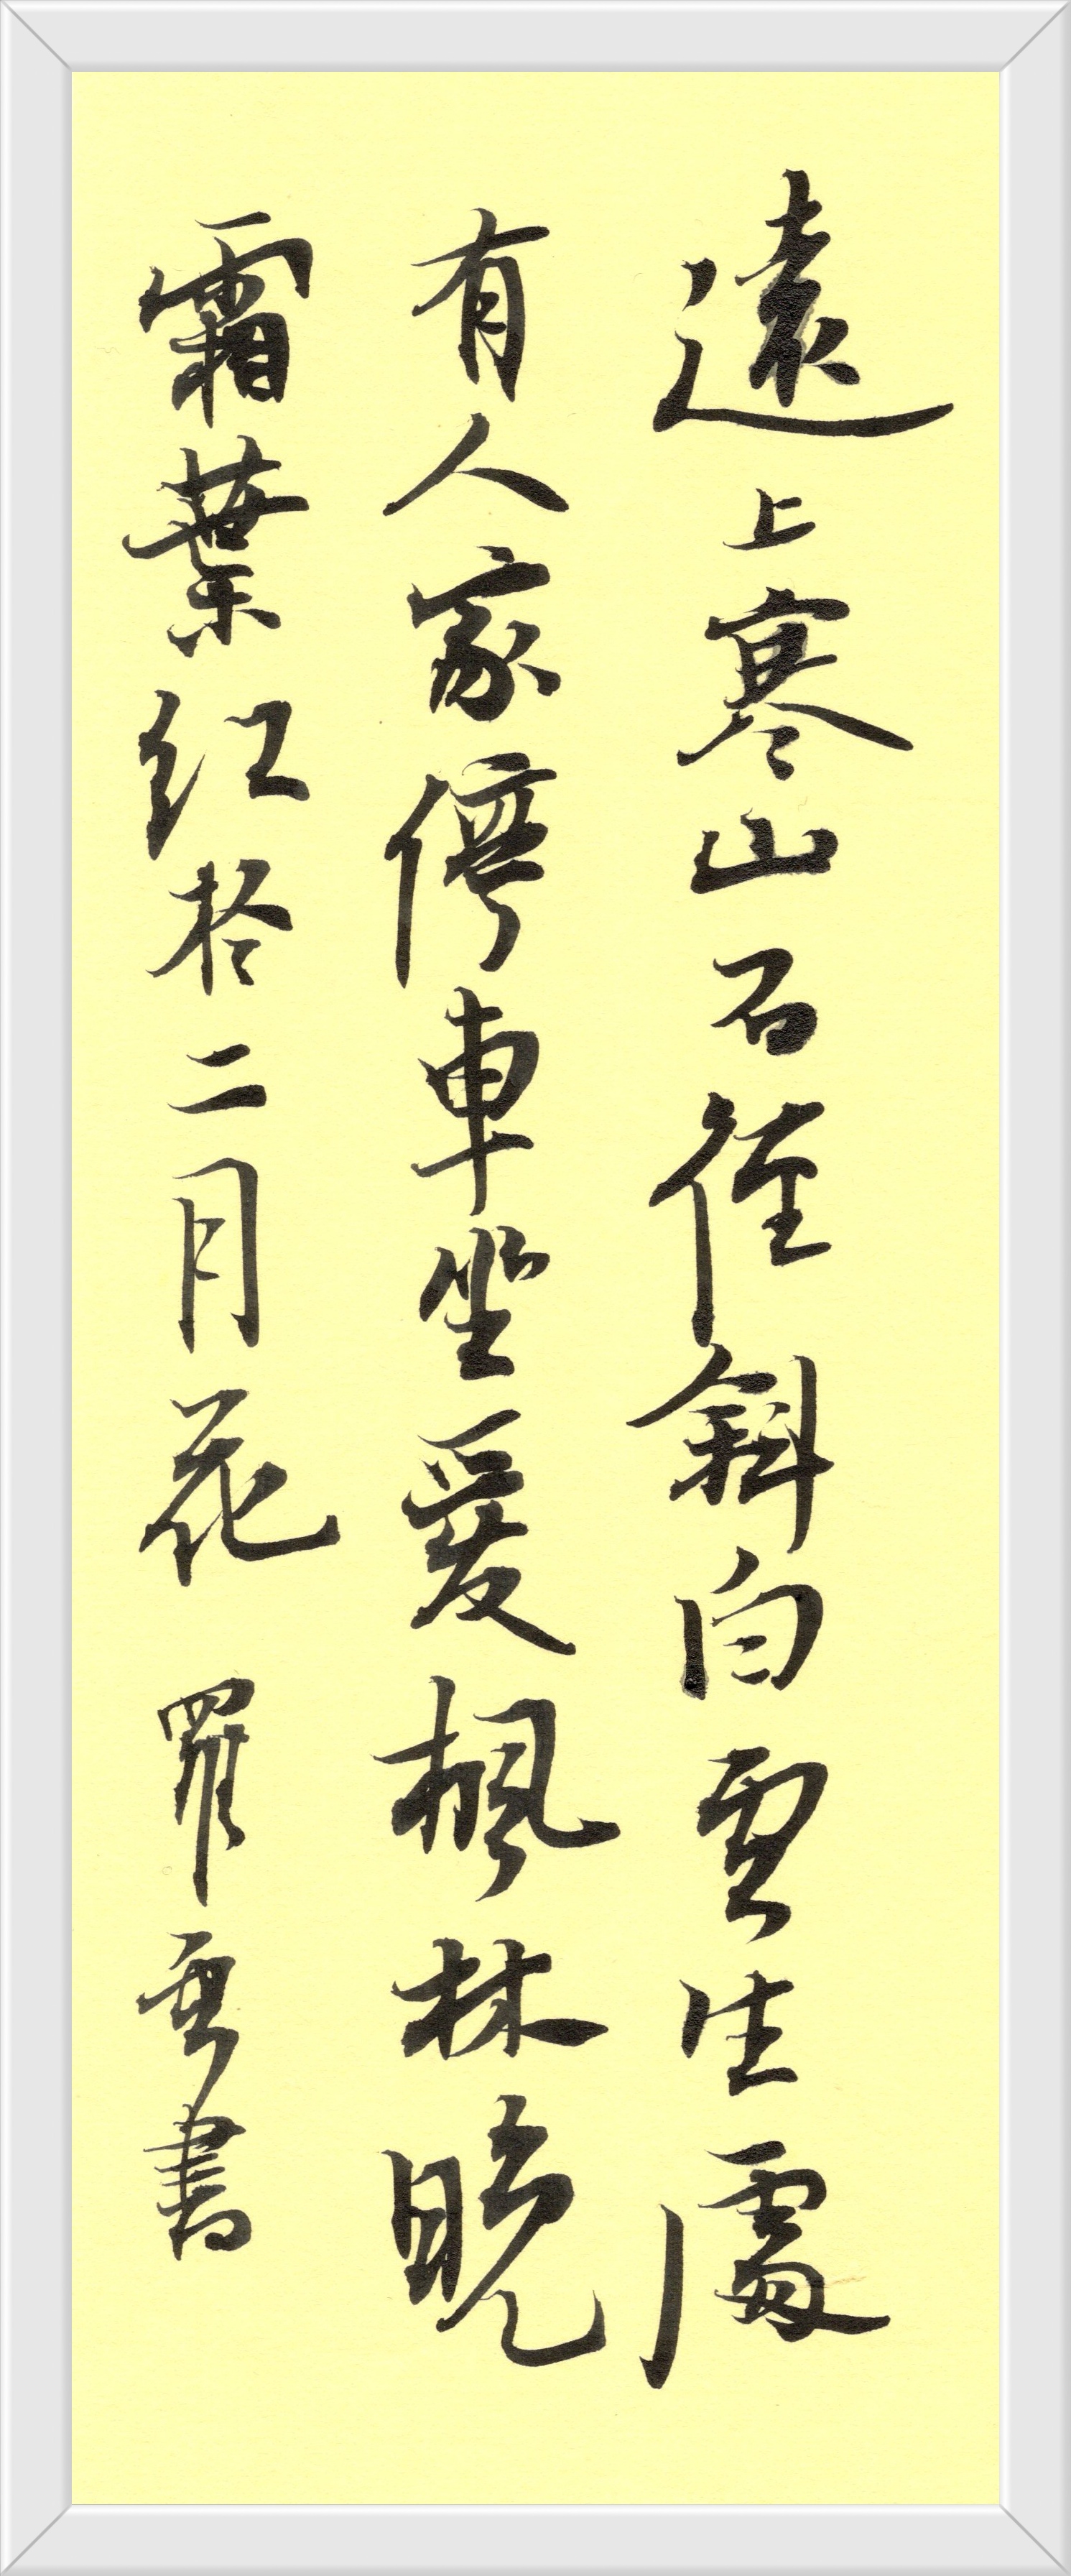 遠上寒山石徑斜白雲生處
有人家停車坐愛楓林晚
霜葉红於二月花 羅雲書